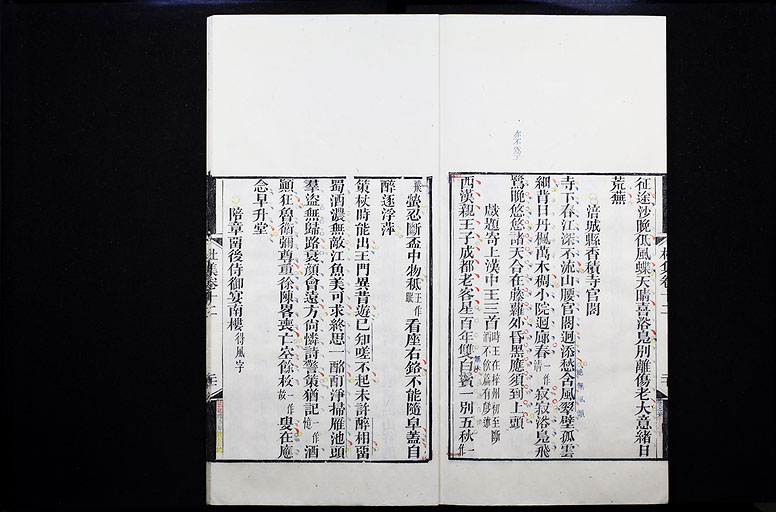 征途沙晚低風蝶天晴喜浴鳧別離傷老大意緒日
荒蕪
涪城縣香積寺官閣
寺下春江深不流山腰官閣迥添愁含風翠壁孤雲
細背日丹楓萬木稠小院迴廊春一作清寂寂浴鳧飛
鷺晚悠悠諸天合在藤蘿外昏黑應須到上頭
戲題寄上漢中王三首時王在梓州初至斷酒不飲篇有戲述
西漢親王子成都老客星百年雙白鬢一別五秋一作
飛螢忍斷盃中物秖王作眠看座右銘不能隨皁蓋自
醉逐浮萍
策杖時能出王門異昔遊已知嗟不起未許醉相留
蜀酒濃無敵江魚美可求終思一酩酊淨掃雁池頭
羣盜無歸路衰顏會遠方尚憐詩警策猶記一作憶酒
顛狂魯衞彌尊重徐陳畧喪亡空餘枚一作故叟在應
念早升堂
陪章留後侍御宴南樓得風字
杜集卷十二
杜集卷十二